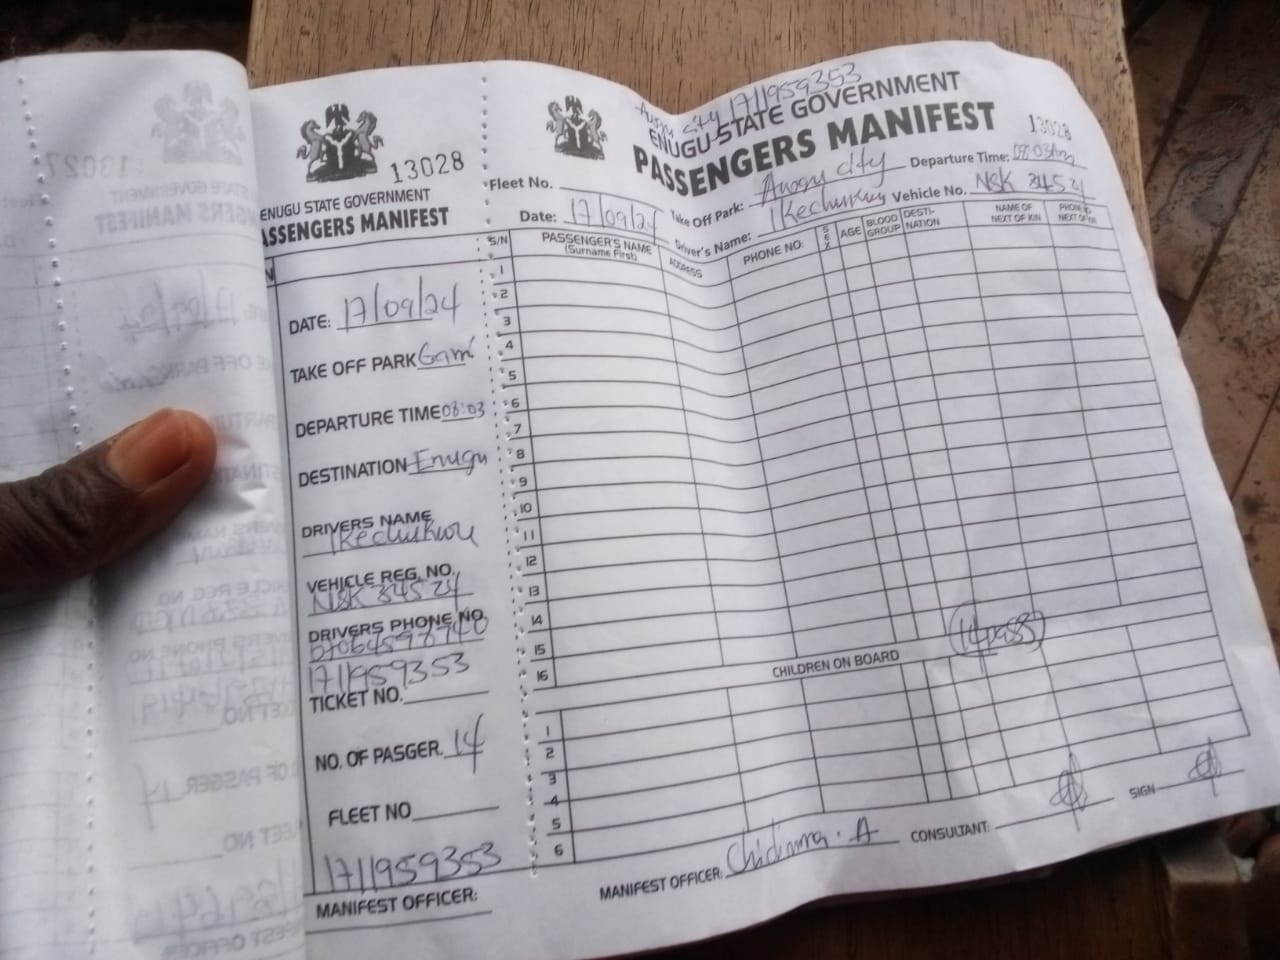 13028
ENUGU STATE GOVERNMENT
PASSENGERS MANIFEST
DATE: 17/09/24
TAKE OFF PARK
DEPARTURE TIME 08:03
DESTINATION Enugu
DRIVERS NAME
Ikechukwu
VEHICLE REG. NO.
NSK
DRIVERS PHONE NO.
1711959353
TICKET NO.
NO. OF PASGER. 14
FLEET NO
1711959353
MANIFEST OFFICER:
city 1711959353
ENUGU STATE GOVERNMENT
PASSENGERS MANIFEST
13028
Fleet No. Take Off Park: city Departure Time: 08:03am
Date: 17/09/24 Driver's Name: Ikechukwu Vehicle No. NSK
S/N PASSENGER'S NAME (Surname First) ADDRESS PHONE NO: SEX AGE BLOOD GROUP DESTI-NATION NAME OF NEXT OF KIN PHONE NO NEXT OF KIN
1
2
3
4
5
6
7
8
9
10
11
12
13
14
15
16
14pass
CHILDREN ON BOARD
1
2
3
4
5
6
MANIFEST OFFICER: Chidinma. A CONSULTANT: SIGN